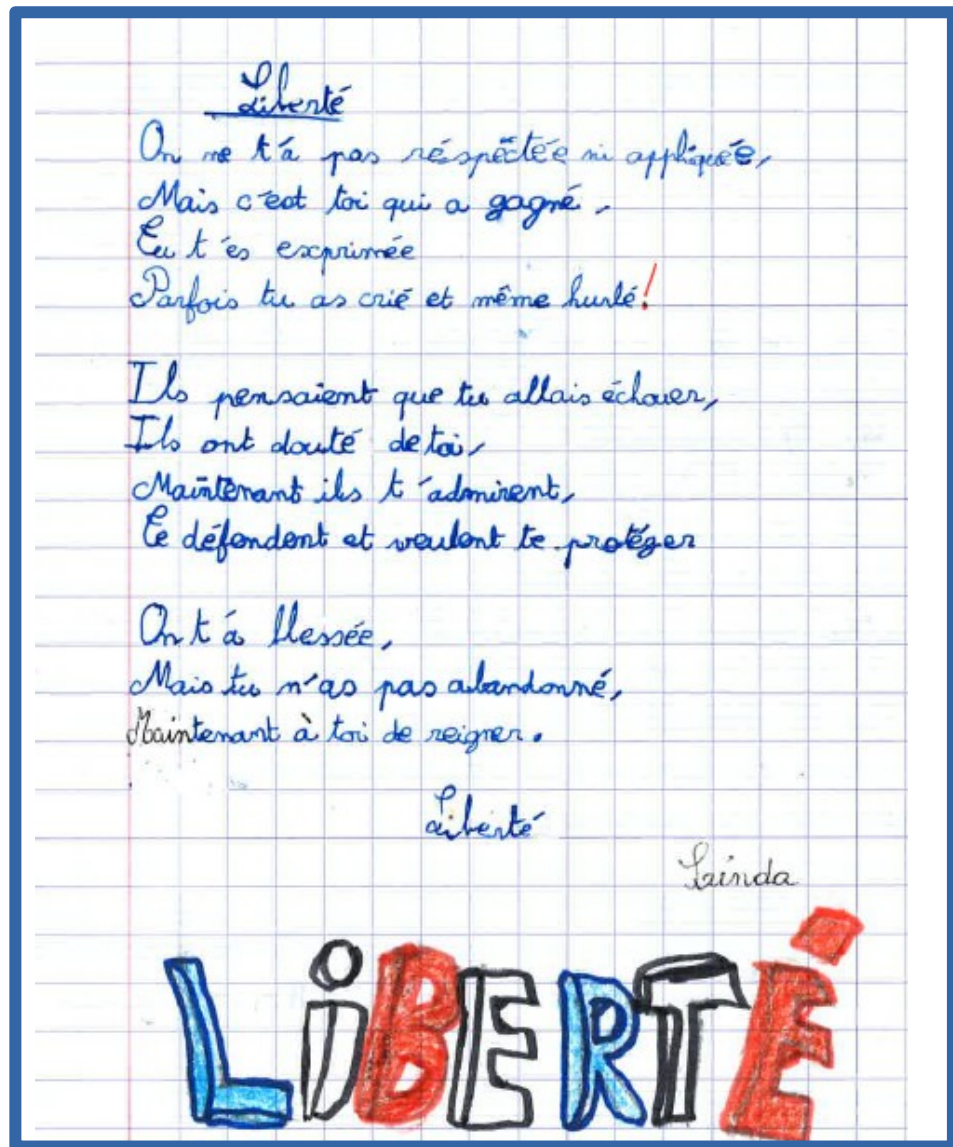 Liberté
On ne t'a pas réspéctée ni appliquée,
Mais c'est toi qui a gagné,
Tu t'es exprimée
Parfois tu as crié et même hurlé!
Ils pensaient que tu allais échouer,
Ils ont douté de toi,
Maintenant ils t'admirent,
Te défendent et veulent te protéger
On t'a blessée,
Mais tu n'as pas abandonné,
Maintenant à toi de reigner.
Liberté
Linda
LiBERTÉ